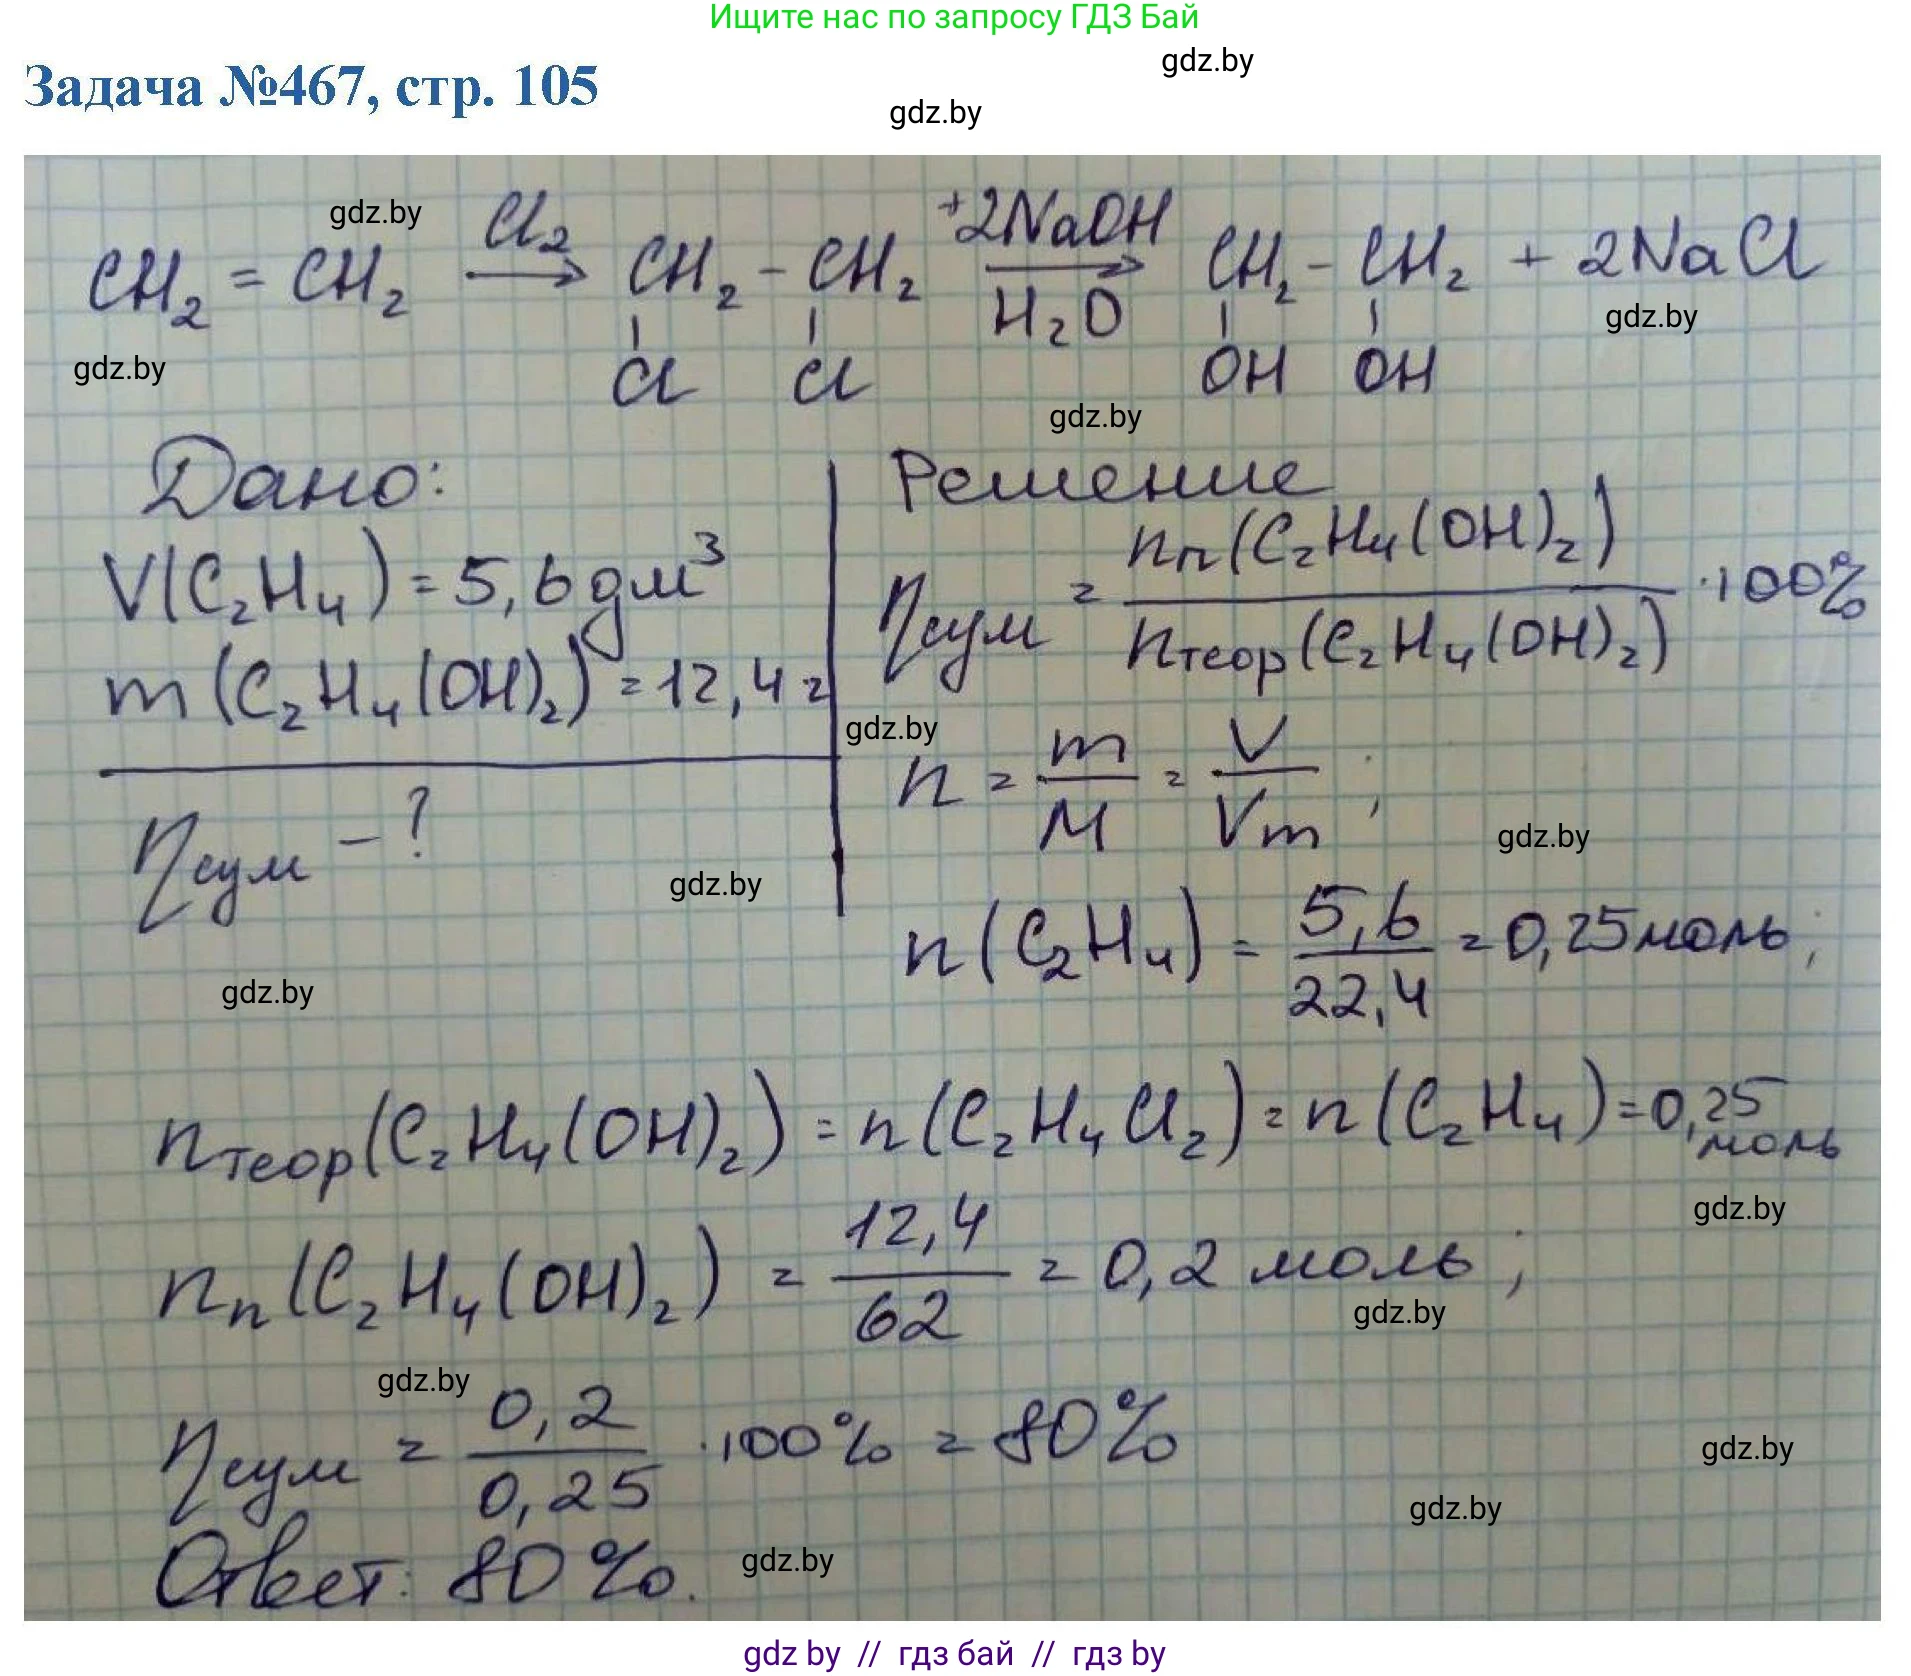 Ищите нас по запросу ГДЗ Бай
gdz.by
Задача №467, стр. 105
gdz.by
gdz.by
CH₂ = CH₂ →(Cl₂) CH₂ - CH₂ →(+2NaOH / H₂O) CH₂ - CH₂ + 2NaCl
gdz.by
gdz.by
Cl Cl OH OH
gdz.by
Дано:
Решение
V(C₂H₄) = 5,6 дм³
m(C₂H₄(OH)₂) = 12,4 г
ηсум = nп(C₂H₄(OH)₂) / nтеор(C₂H₄(OH)₂) · 100%
gdz.by
n = m/M = V/Vm ;
gdz.by
ηсум - ?
gdz.by
n(C₂H₄) = 5,6/22,4 = 0,25 моль;
gdz.by
nтеор(C₂H₄(OH)₂) = n(C₂H₄Cl₂) = n(C₂H₄) = 0,25 моль
gdz.by
nп(C₂H₄(OH)₂) = 12,4/62 = 0,2 моль ;
gdz.by
gdz.by
ηсум = 0,2/0,25 · 100% = 80%
gdz.by
gdz.by
Ответ: 80%.
gdz.by
gdz by // гдз бай // гдз by